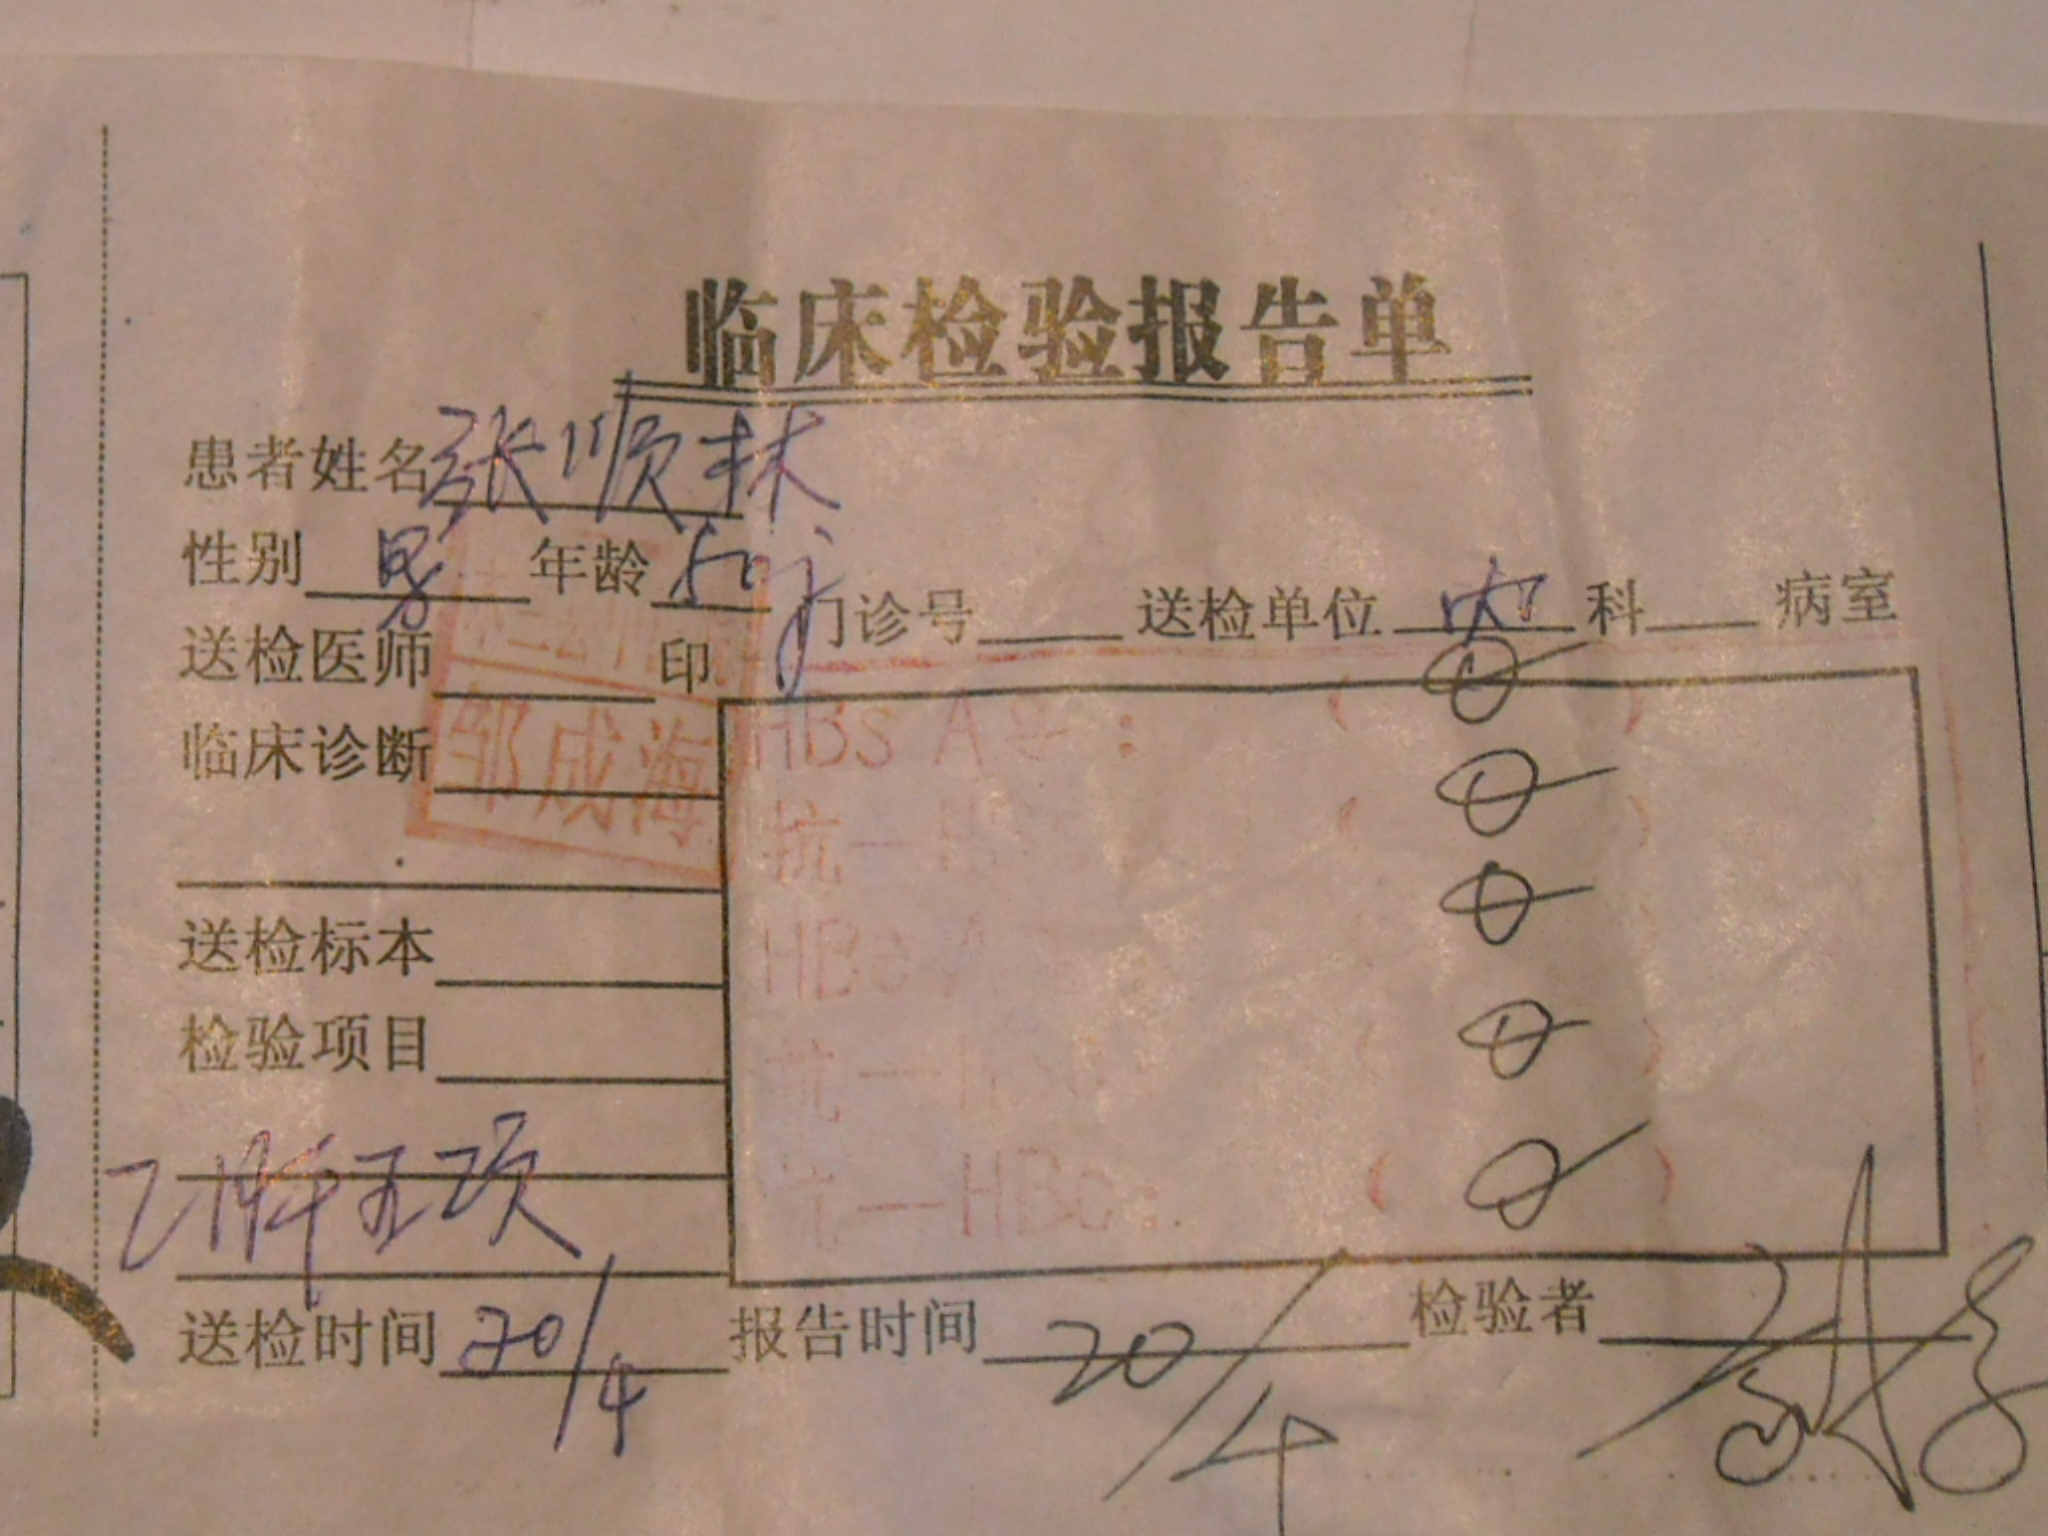 临床检验报告单
患者姓名 张顺林
性别 男 年龄 门诊号 送检单位 内 科 病室
送检医师 印
邹成海
临床诊断
HBsAg:
抗—HBs
送检标本
HBeA
检验项目
抗—
乙肝五项
抗—HBc:
送检时间 20/4 报告时间 20/4 检验者